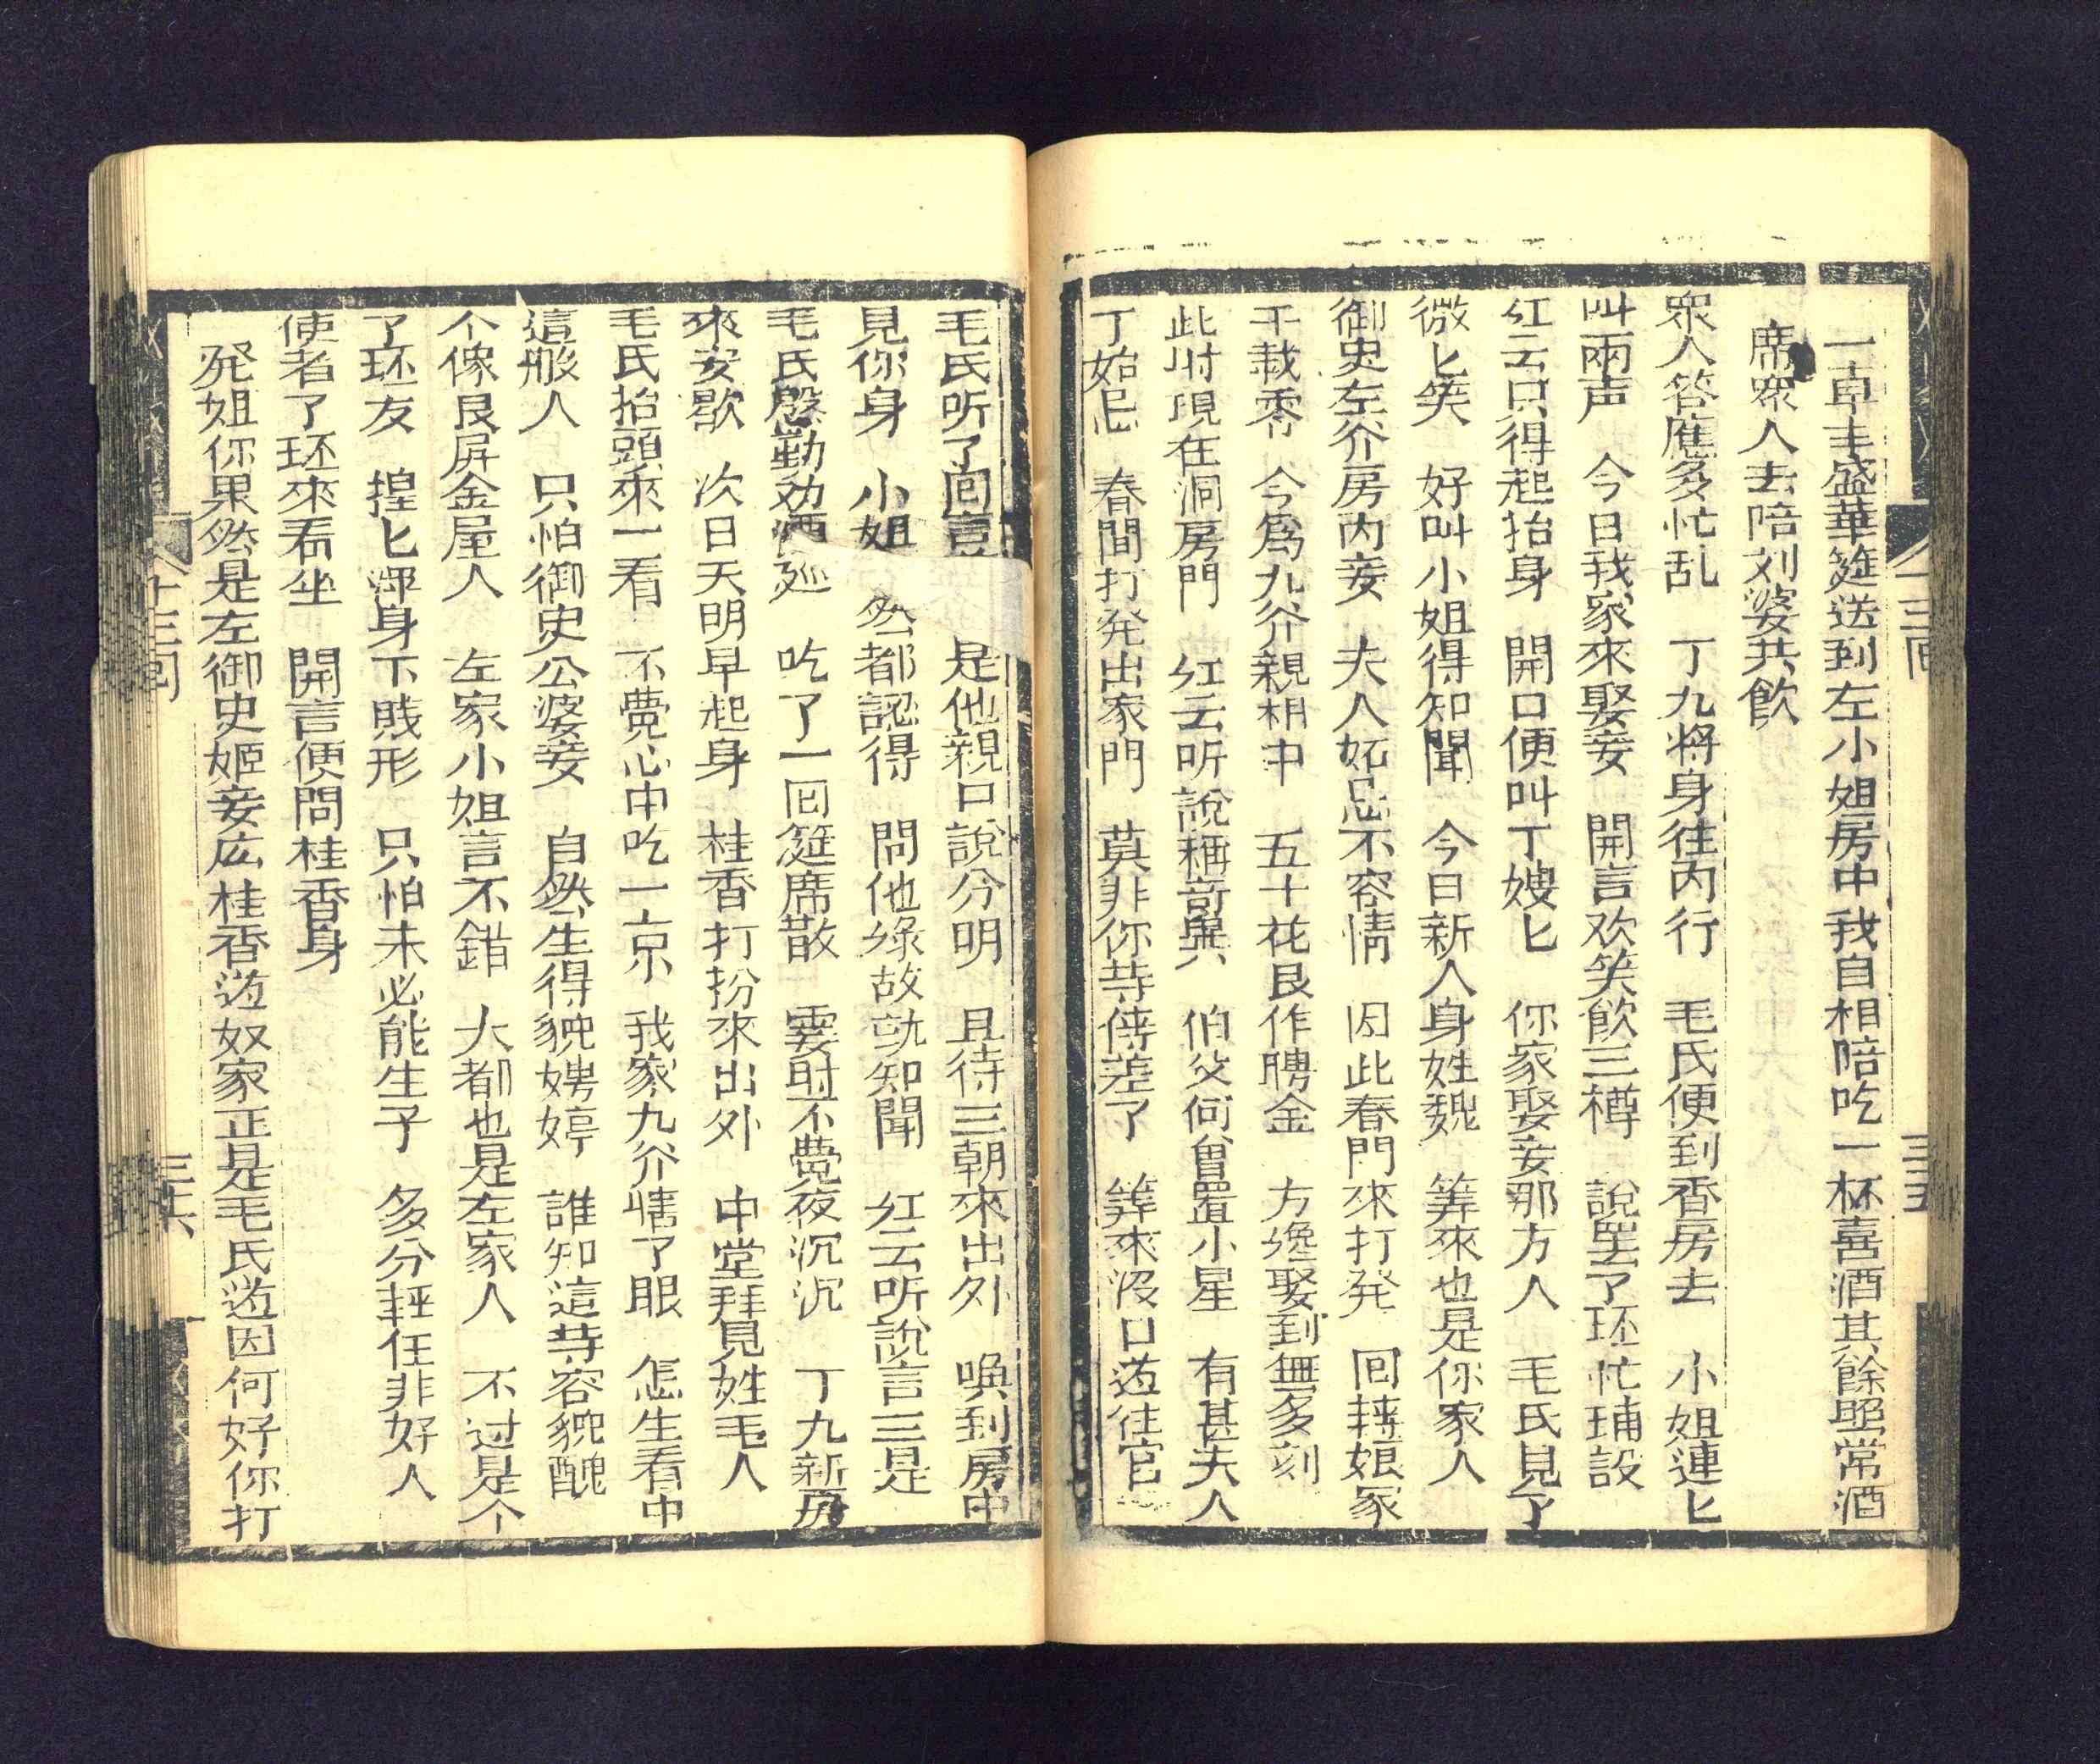 一卓丰盛華筵送到左小姐房中我自相陪吃一杯喜酒其餘照常酒
席衆人去陪刘婆共飲
衆人答應多忙乱　丁九将身往内行　毛氏便到香房去　小姐連匕
叫兩声　今日我家來娶妾　開言欢笑飲三樽　說罢了环忙鋪設
红云只得起抬身　開口便叫丁嫂匕　你家娶妾那方人　毛氏見了
微匕笑　好叫小姐得知聞　今日新人身姓魏　筭來也是你家人
御史左爷房内妾　夫人妬忌不容情　因此春門來打発　回轉娘家
千載零　今為九爷親相中　五十花艮作聘金　方纔娶到無多刻
此时現在洞房門　红云听說稱竒異　伯父何曾置小星　有甚夫人
丁妬忌　春間打発出家門　莫非你等傳差了　筭來没口道往官
十三回　三五
毛氏听了囬言　是他親口說分明　且待三朝來出外　喚到房中
見你身　小姐　然都認得　問他缘故就知聞　红云听說言三是
毛氏慇勤劝酒延　吃了一囬筵席散　霎时不覺夜沉沉　丁九新房
來安歇　次日天明早起身　桂香打扮來出外　中堂拜見姓毛人
毛氏抬頭來一看　不覺心中吃一京　我家九爷瞎了眼　怎生看中
這般人　只怕御史公婆妾　自然生得貌娉婷　誰知這等容貌醜
不像艮屏金屋人　左家小姐言不錯　大都也是左家人　不过是个
了环友　捏匕渾身下賎形　只怕未必能生子　多分輕任非好人
使者了环來看坐　開言便問桂香身
発姐你果然是左御史姬妾広桂香道奴家正是毛氏道因何好你打
十三囘　三六